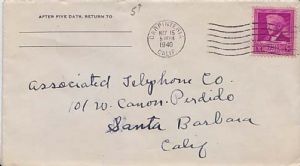 5¢
AFTER FIVE DAYS, RETURN TO
CARPINTERIA
MAY 15
1940
CALIF.
Associated Telephone Co.
101 W. Canon-Perdido
Santa Barbara
Calif